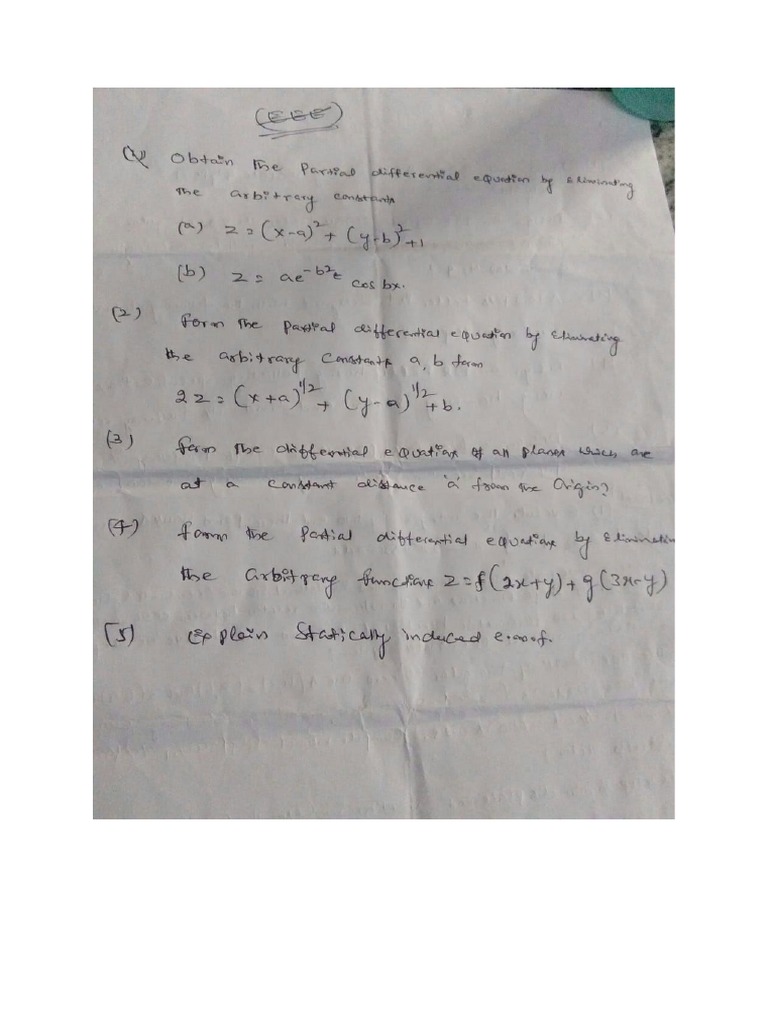 (EEE)
(1) Obtain the Partial differential equation by eliminating
the arbitrary constants
(a) z = (x-a)² + (y-b)² + 1
(b) z = ae^-b²t cos bx.
(2) form the Partial differential equation by eliminating
the arbitrary constants a, b form
2z = (x+a)^1/2 + (y-a)^1/2 + b.
(3) form the differential equations of all planes which are
at a constant distance 'a' from the origin?
(4) form the Partial differential equations by eliminatin
the arbitrary functions z = f(2x+y) + g(3x-y)
(5) Explain Statically induced e.m.f.